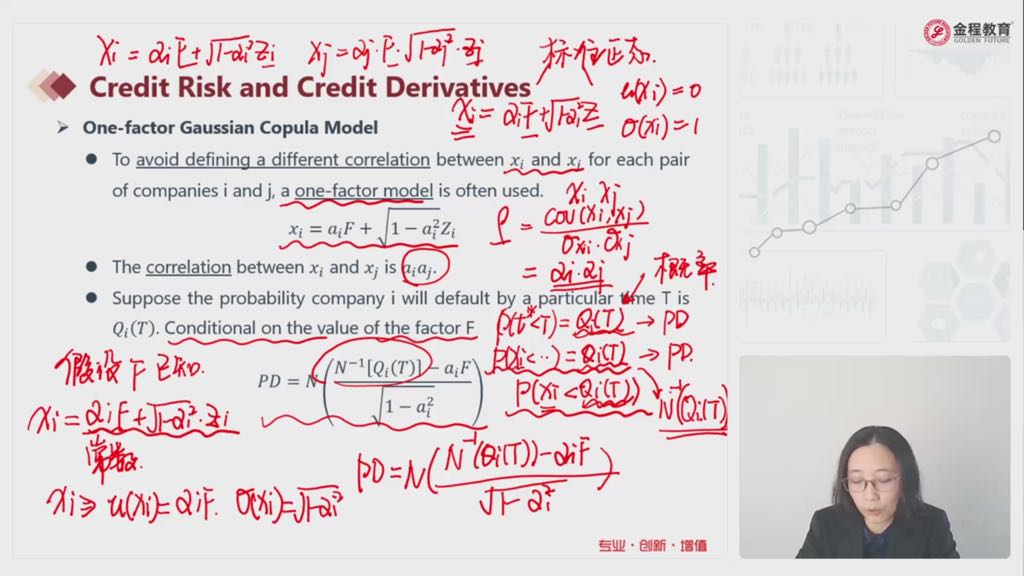 金程教育
GOLDEN FUTURE
xi = aiF + √1-ai² Zi  xj = aj·F·√1-aj²·Zj
标准正态.
Credit Risk and Credit Derivatives
xi = aiF + √1-ai² Z
u(xi) = 0
σ(xi) = 1
➢ One-factor Gaussian Copula Model
● To avoid defining a different correlation between xᵢ and xⱼ for each pair
of companies i and j, a one-factor model is often used.
xi xj
xᵢ = aᵢF + √1 − aᵢ² Zᵢ
ρ = cov(xi, xj) / σxi·σxj
● The correlation between xᵢ and xⱼ is aᵢaⱼ.
= ai·aj
概率.
● Suppose the probability company i will default by a particular time T is
Qᵢ(T). Conditional on the value of the factor F
P(t*<T) = Qi(T) → PD
P(xi<··) = Qi(T) → PD.
P(xi < Qi(T))
N⁻¹(Qi(T))
PD = N( (N⁻¹[Qᵢ(T)] − aᵢF) / √1 − aᵢ² )
假设 F 已知.
xi = aiF + √1-ai²·Zi
常数.
PD = N( (N⁻¹(Qi(T)) - aiF) / √1-ai² )
xi ⇒ u(xi) = aiF. σ(xi) = √1-ai²
专业·创新·增值